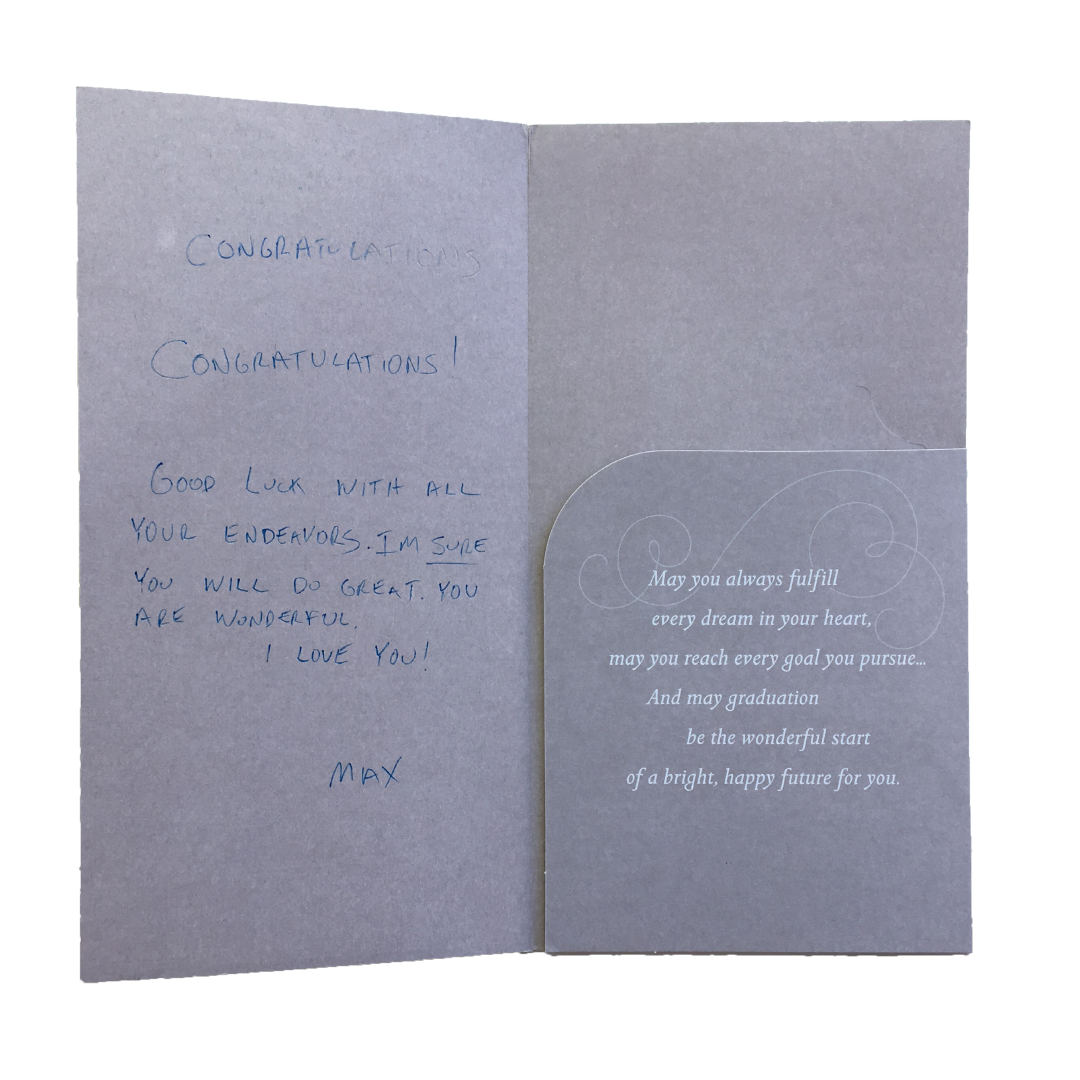 CONGRATULATIONS
CONGRATULATIONS!
GOOD LUCK WITH ALL
YOUR ENDEAVORS. IM SURE
YOU WILL DO GREAT. YOU
ARE WONDERFUL.
I LOVE YOU!
MAX
May you always fulfill
every dream in your heart,
may you reach every goal you pursue...
And may graduation
be the wonderful start
of a bright, happy future for you.